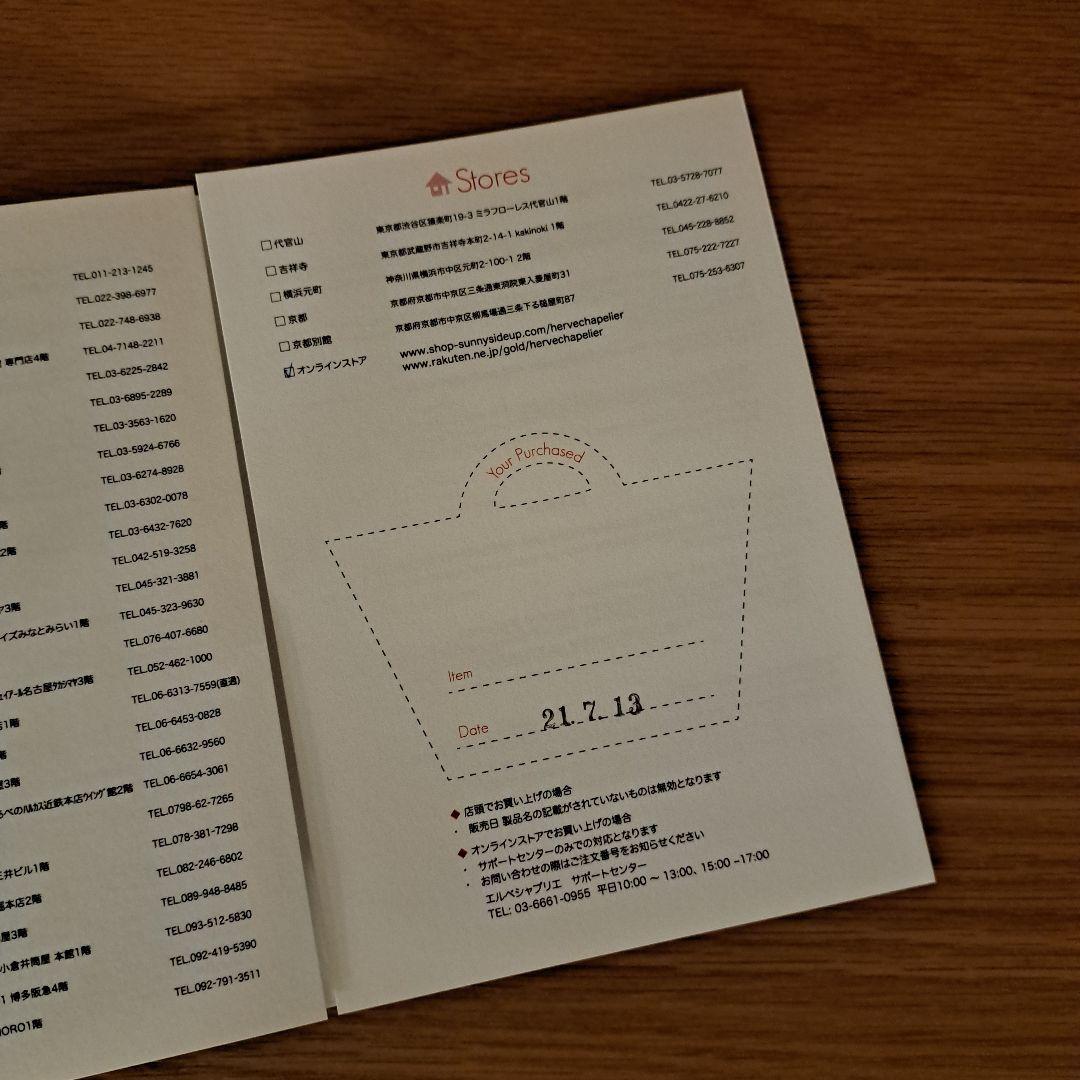 TEL.011-213-1245
TEL.022-398-6977
TEL.022-748-6938
専門店4階 TEL.04-7148-2211
TEL.03-6225-2842
TEL.03-6895-2289
TEL.03-3563-1620
TEL.03-5924-6766
TEL.03-6274-8928
階 TEL.03-6302-0078
2階 TEL.03-6432-7620
TEL.042-519-3258
ヤ3階 TEL.045-321-3881
イズみなとみらい1階 TEL.045-323-9630
TEL.076-407-6680
ェイアール名古屋タカシマヤ3階 TEL.052-462-1000
店1階 TEL.06-6313-7559(直通)
階 TEL.06-6453-0828
屋3階 TEL.06-6632-9560
らべのハルカス近鉄本店ウイング館2階 TEL.06-6654-3061
TEL.0798-62-7265
TEL.078-381-7298
三井ビル1階 TEL.082-246-6802
本店2階 TEL.089-948-8485
屋3階 TEL.093-512-5830
小倉井筒屋 本館1階 TEL.092-419-5390
1 博多阪急4階 TEL.092-791-3511
ORO1階
Stores
代官山 東京都渋谷区猿楽町19-3 ミラフローレス代官山1階 TEL.03-5728-7077
吉祥寺 東京都武蔵野市吉祥寺本町2-14-1 kakinoki 1階 TEL.0422-27-6210
横浜元町 神奈川県横浜市中区元町2-100-1 2階 TEL.045-228-8852
京都 京都府京都市中京区三条通東洞院東入菱屋町31 TEL.075-222-7227
京都別館 京都府京都市中京区柳馬場通三条下る槌屋町87 TEL.075-253-6307
オンラインストア www.shop-sunnysideup.com/hervechapelier
www.rakuten.ne.jp/gold/hervechapelier
Your Purchased
Item
Date 21.7.13
◆ 店頭でお買い上げの場合
・ 販売日 製品名の記載がされていないものは無効となります
◆ オンラインストアでお買い上げの場合
・ サポートセンターのみでの対応となります
・ お問い合わせの際はご注文番号をお知らせください
エルベシャプリエ サポートセンター
TEL: 03-6661-0955 平日10:00 ～ 13:00、15:00 –17:00